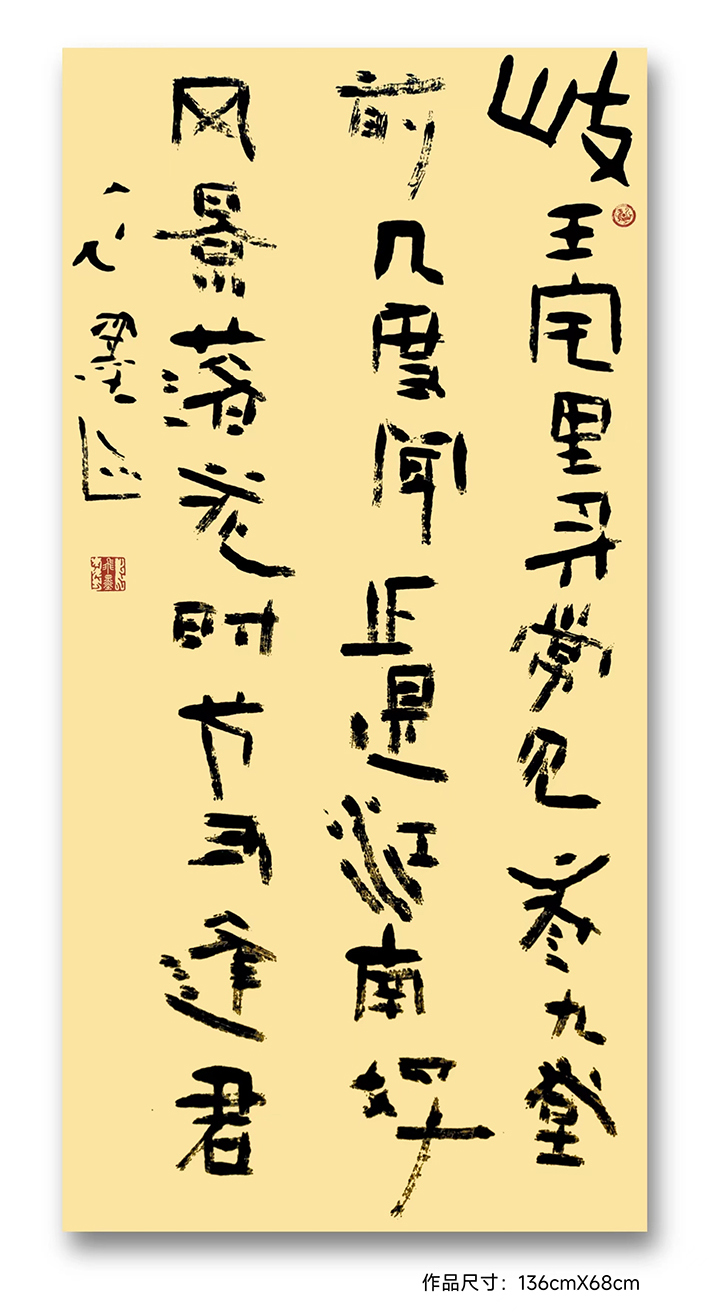 岐王宅里寻常见崔九堂
前几度闻正是江南好
风景落花时节又逢君
作品尺寸：136cmX68cm